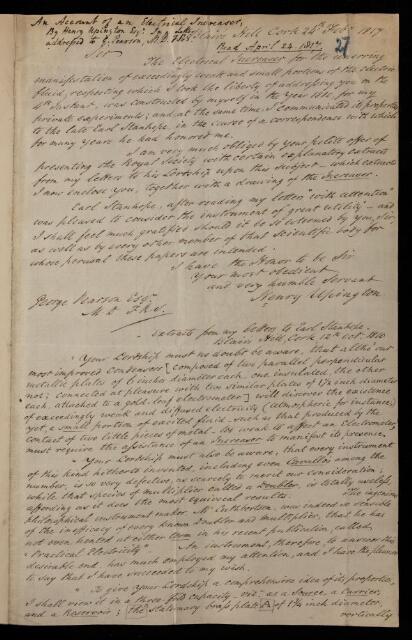 An Account of an Electrical Increaser,
By Henry Upington Esqr. In a Letter
addressed to G. Pearson, M.D. F.R.S.
Blairs Hill Cork 24th Feby 1817
Read April 24. 1817
27
Sir
The Electrical Increaser for the unerring
manifestation of exceedingly weak and small portions of the electric
fluid, respecting which I took the liberty of addressing you on the
4th Instant, was constructed by myself in the year 1810 for my
private experiments; and at the same time I communicated its properties
to the late Earl Stanhope in the course of a correspondence with which
for many years he had honored me.
I am very much obliged by your polite offer of
presenting the Royal Society with certain explanatory extracts
from my letters to his Lordship upon this subject - which extracts
I now inclose you, together with a drawing of the Increaser.
Earl Stanhope, after reading my letter "with attention"
was pleased to consider the instrument of great utility - and
I shall feel much gratified should it be so esteemed by you, Sir,
as well as by every other member of that Scientific body for
whose perusal these papers are intended.
I have the Honor to be Sir
Your most obedient
and very humble Servant
Henry Upington
George Pearson Esqr.
M D F.R.S.
Extracts from my letters to Earl Stanhope.
Blairs Hill, Cork 12th Oct. 1810
"Your Lordship must no doubt be aware, that altho' our
most improved Condenser [composed of two parallel perpendicular
metallic plates of 6 inches diameter each, one insulated, the other
not; connected at pleasure with two similar plates of 1¼ inch diameter
each, attached to a gold-leaf electrometer] will discover the existence
of exceedingly weak and diffused electricity (atmospheric for instance)
yet a small portion of excited fluid, such as that produced by the
contact of two little pieces of metal, too weak to affect an Electrometer,
must require the assistance of an Increaser to manifest its presence.
"Your Lordship must also be aware, that every instrument
of this kind hitherto invented, including even Cavallos among the
number, is so very defective, as scarcely to merit our consideration;
while that species of multiplier called a Doubler, is totally useless,
affording as it does the most equivocal results. The ingenious
philosophical instrument maker Mr Cuthbertson, was indeed so sensible
of the inefficacy of every known Doubler and multiplier, that he has
not even hinted at either term in his recent publication, called,
"Practical Electricity". An instrument, therefore to answer this
desirable end has much employed my attention, and I have the pleasure
to say that I have succeeded to my wish.
"To give your Lordship a comprehensive idea of its properties,
I shall view it in a three fold capacity - viz. as a Source, a Carrier,
and a Reservoir; the stationary brass plate A of 1¼ inch diameter,
vertically